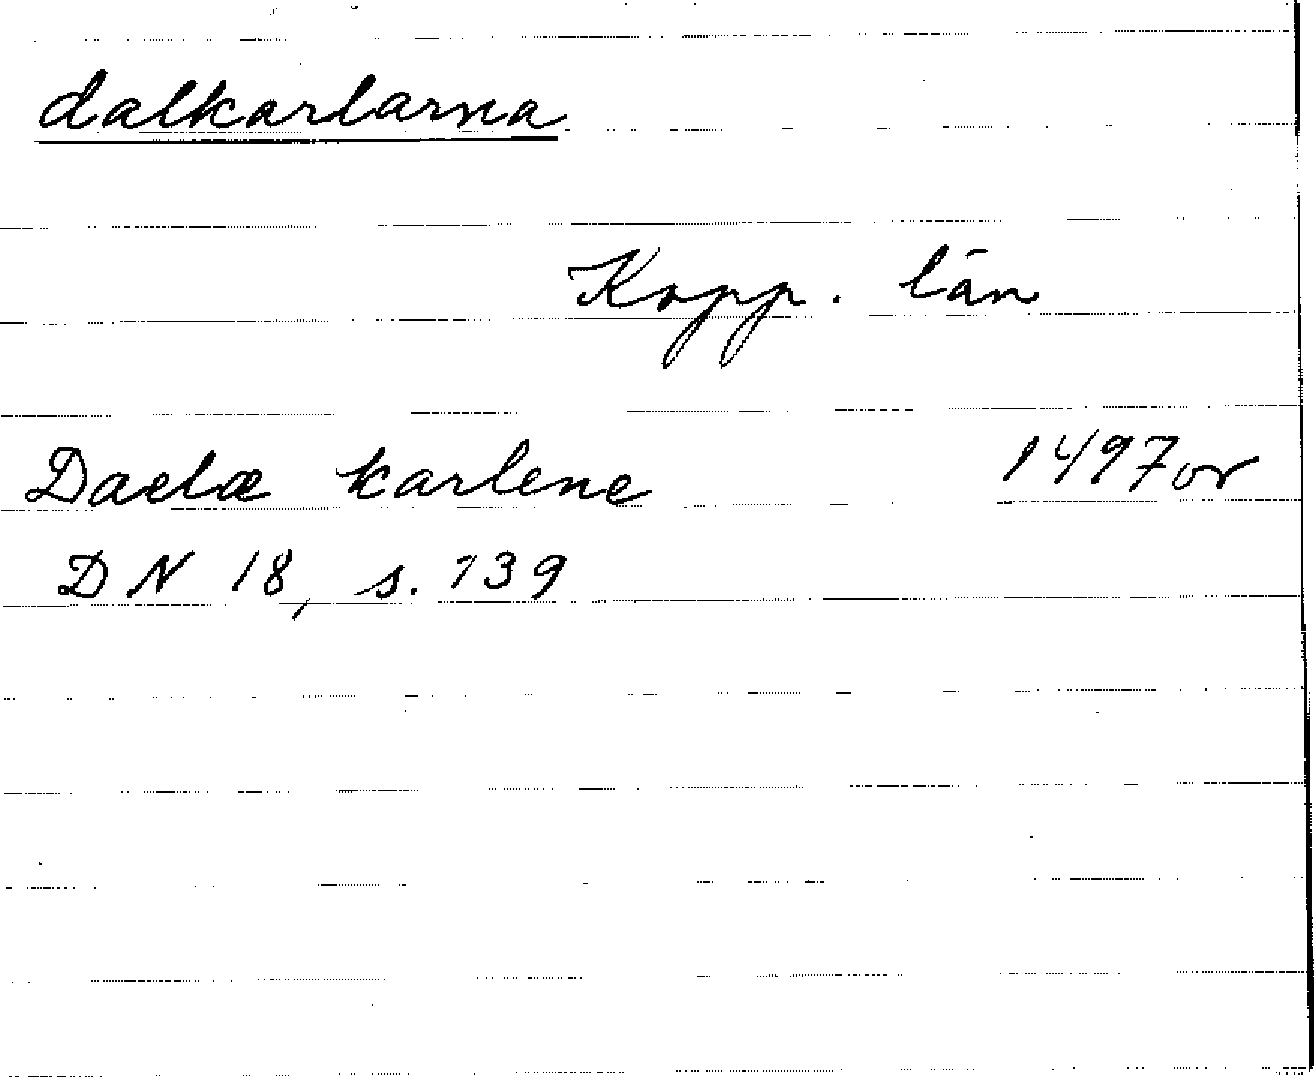 dalkarlarna
Kopp. län
Daelæ karlene 1497 or
DN 18, s. 139